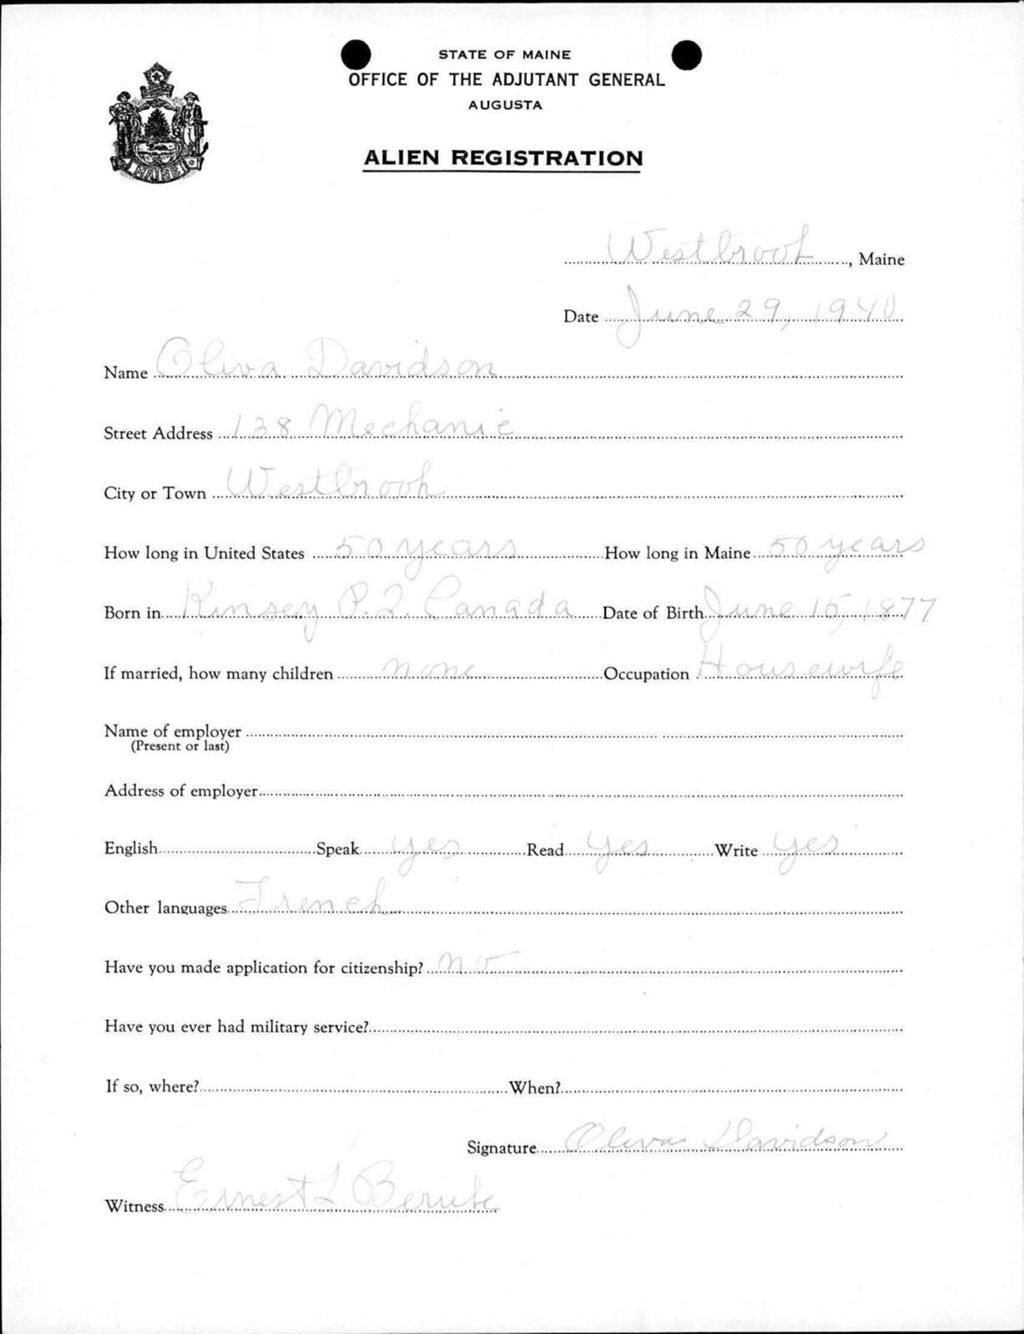 STATE OF MAINE
OFFICE OF THE ADJUTANT GENERAL
AUGUSTA
ALIEN REGISTRATION
MAINE
Westbrook, Maine
Date June 29, 1940
Name Oliva Davidson
Street Address 138 Mechanic
City or Town Westbrook
How long in United States 50 years How long in Maine 50 years
Born in Kinsey P.Q. Canada Date of Birth June 15, 1877
If married, how many children none Occupation Housewife
Name of employer
(Present or last)
Address of employer
English Speak yes Read yes Write yes
Other languages French
Have you made application for citizenship? no
Have you ever had military service?
If so, where? When?
Signature Oliva Davidson
Witness Ernest L Berube